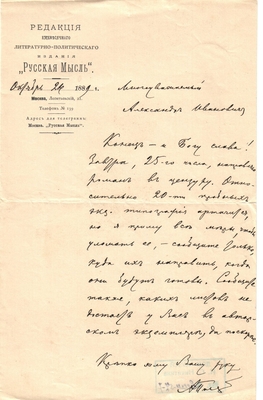 РЕДАКЦІЯ
ЕЖЕМѢСЯЧНАГО
ЛИТЕРАТУРНО-ПОЛИТИЧЕСКАГО
ИЗДАНІЯ
„РУССКАЯ МЫСЛЬ".
Октябрь 24 1889 г.
Москва,
Телефонъ №
Адресъ для телеграммъ:
Москва, „Русская Мысль".
Многоуважаемый
Александръ Ивановичъ
Конецъ – и Богу слава!
Завтра, 25-го числа,
романъ въ цензуру. Отно-
сительно 20-ти
экз. типографія
но я приму всѣ мѣры, чтобъ
уломать ее, – сообщите только,
куда ихъ направить, когда
они будутъ готовы. Сообщите
также, какихъ листовъ не
достаетъ у Васъ въ автор-
скомъ экземплярѣ, да поскорѣе.
Крѣпко жму Вашу руку